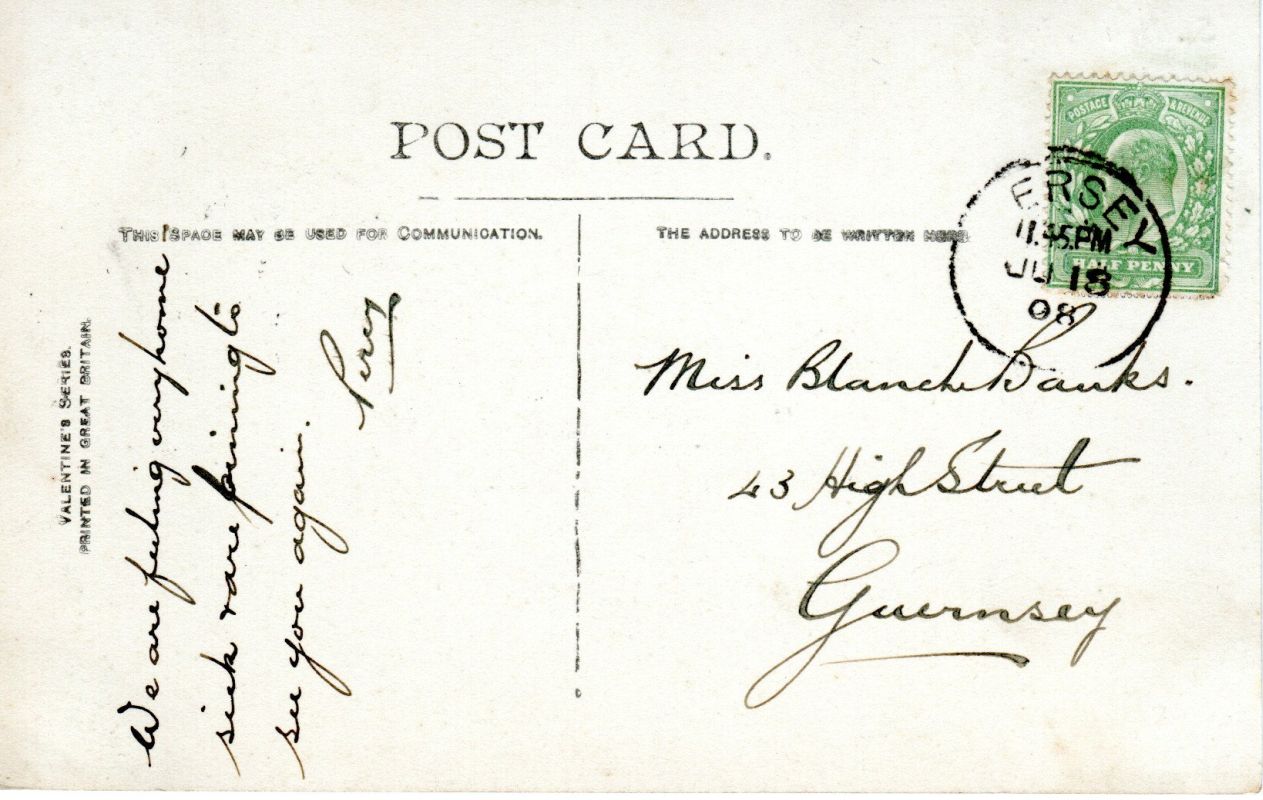 POST CARD.
THIS SPACE MAY BE USED FOR COMMUNICATION.
THE ADDRESS TO BE WRITTEN HERE
VALENTINE'S SERIES.
PRINTED IN GREAT BRITAIN.
We are feeling very home
sick & are pining to
see you again.
Percy
POSTAGE & REVENUE
HALF PENNY
ERSEY
11.45.PM
JU 18
08
Miss Blanche Banks.
43 High Street
Guernsey